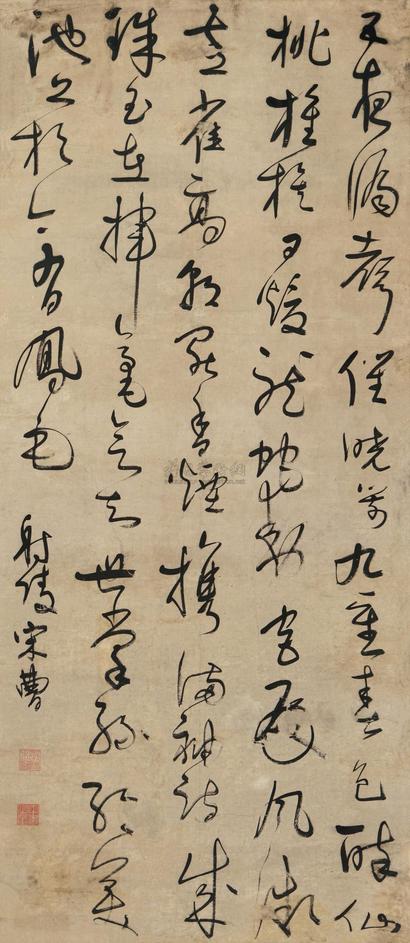 五夜漏聲催曉箭九重春色醉仙
桃旌旂日煖龍蛇動宮殿風微
燕雀高朝罷香煙攜滿袖詩成
珠玉在揮毫欲知世掌絲綸美
池上於今有鳳毛
射陵宋曹